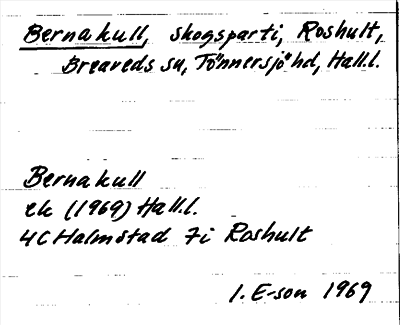 Bernakull, skogsparti, Roshult,
Breareds sn, Tönnersjö hd, Hall.l.
Bernakull
ek (1969) Hall.l.
4C Halmstad 7i Roshult
I. E-son 1969